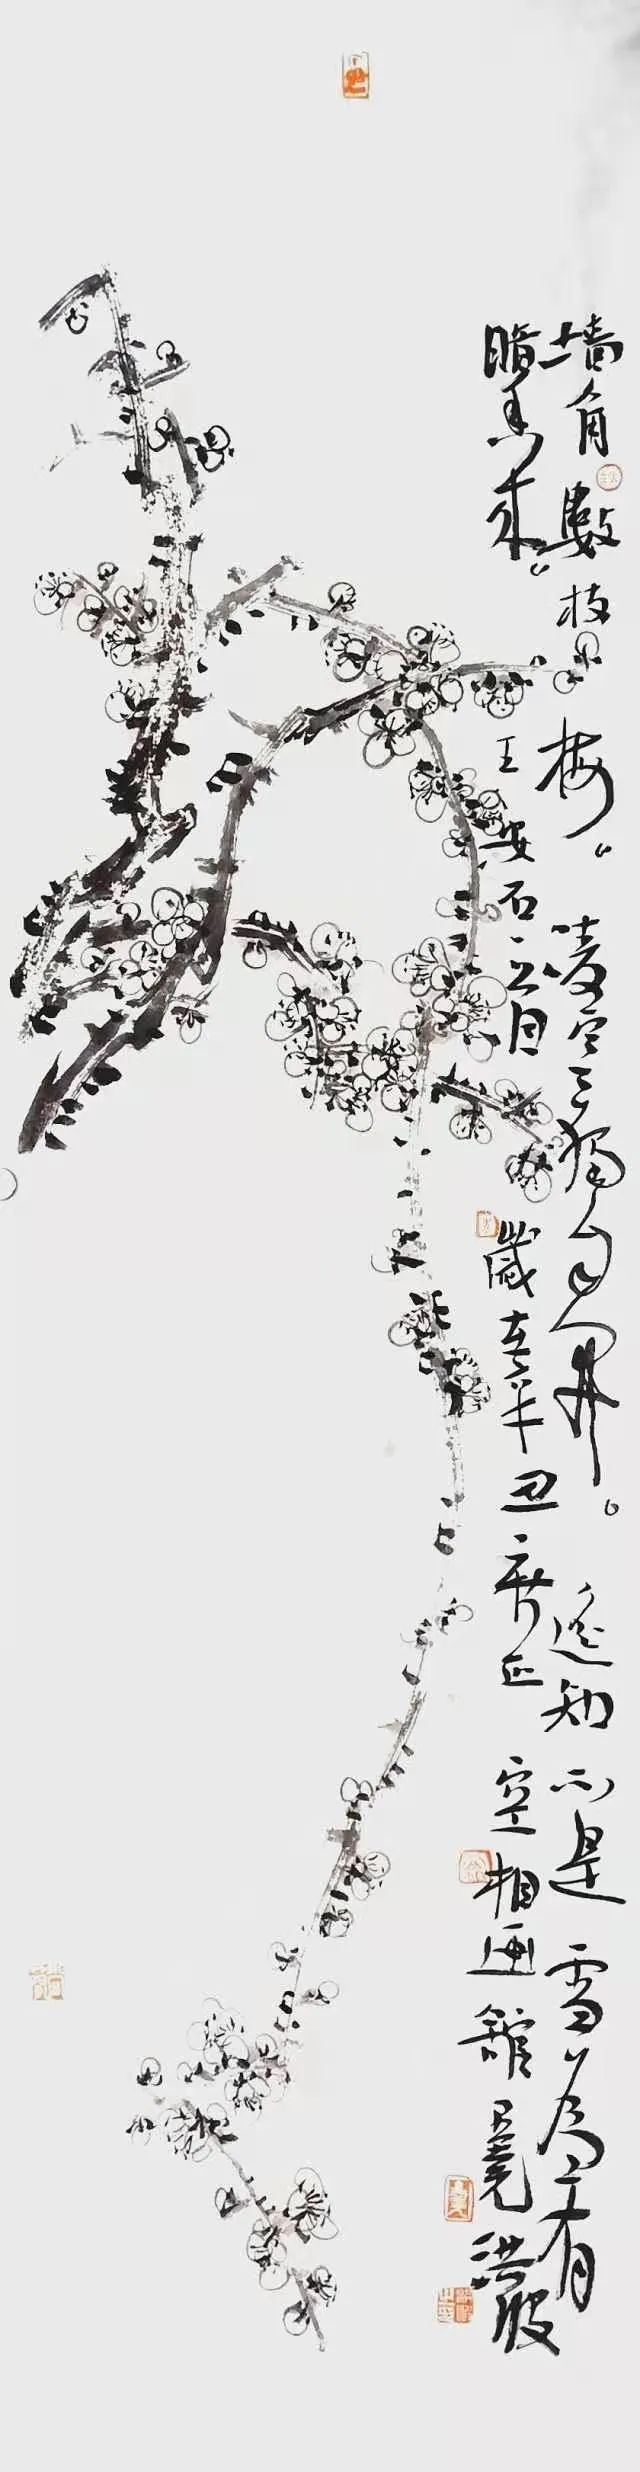 墙角數枝梅。凌寒獨自開。遥知不是雪为有
暗香来。王安石 歲在辛丑新正 空相画舘 洪